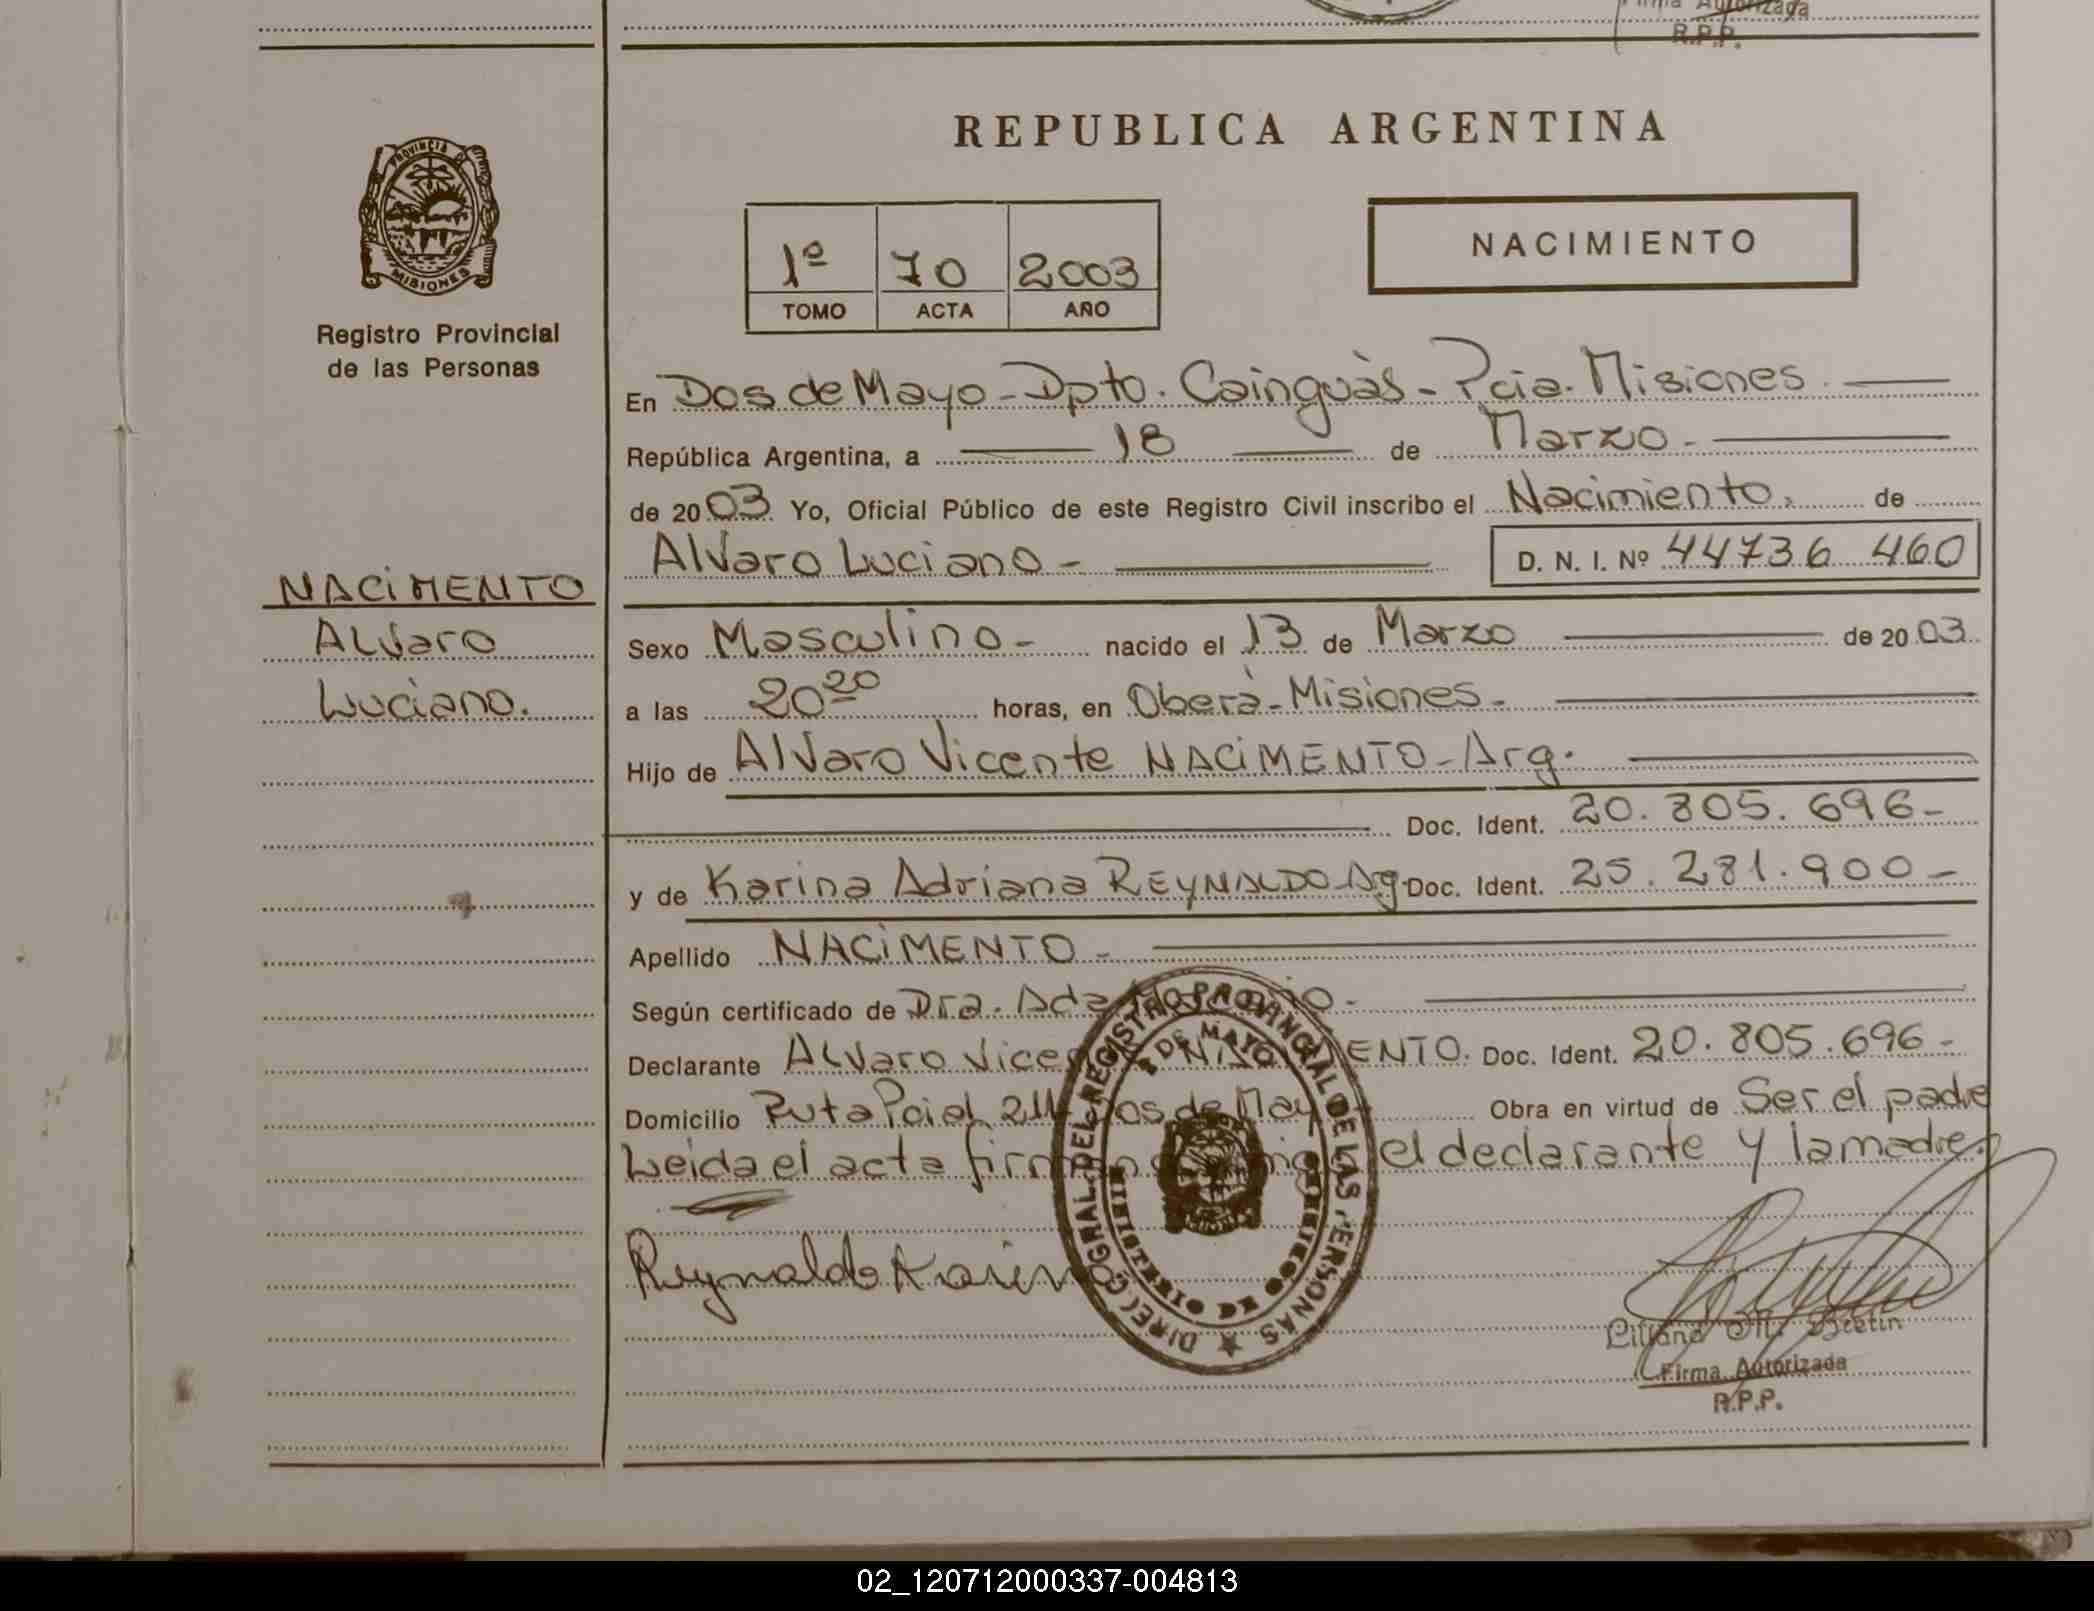 Firma Autorizada
R.P.P.
REPUBLICA ARGENTINA
PROVINCIA DE
MISIONES
Registro Provincial
de las Personas
1º 70 2003
TOMO ACTA AÑO
NACIMIENTO
En Dos de Mayo - Dpto. Cainguàs - Pcia. Misiones.
República Argentina, a 18 de Marzo -
de 2003 Yo, Oficial Público de este Registro Civil inscribo el Nacimiento. de
Alvaro Luciano - D. N. I. Nº 44736 460
NACIMENTO
Alvaro
Luciano.
Sexo Masculino - nacido el 13 de Marzo de 2003
a las 20 20 horas, en Oberà - Misiones -
Hijo de Alvaro Vicente NACIMENTO - Arg.
Doc. Ident. 20.805.696 -
y de Karina Adriana REYNALDO - Ag. Doc. Ident. 25.281.900 -
Apellido NACIMENTO -
Según certificado de Dra. Ada
Declarante Alvaro Vice ENTO. Doc. Ident. 20.805.696 -
Domicilio Ruta Pcial. 211 Dos de Mayo Obra en virtud de Ser el padre
Leida el acta el declarante y la madre.
Reynaldo Karin
DIREC. GRAL. DEL REGISTRO PROVINCIAL DE LAS PERSONAS
DE MAYO
Liliana
Firma Autorizada
R.P.P.
02_120712000337-004813